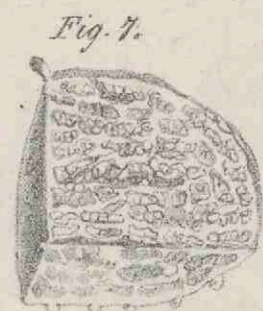 Fig. 7.